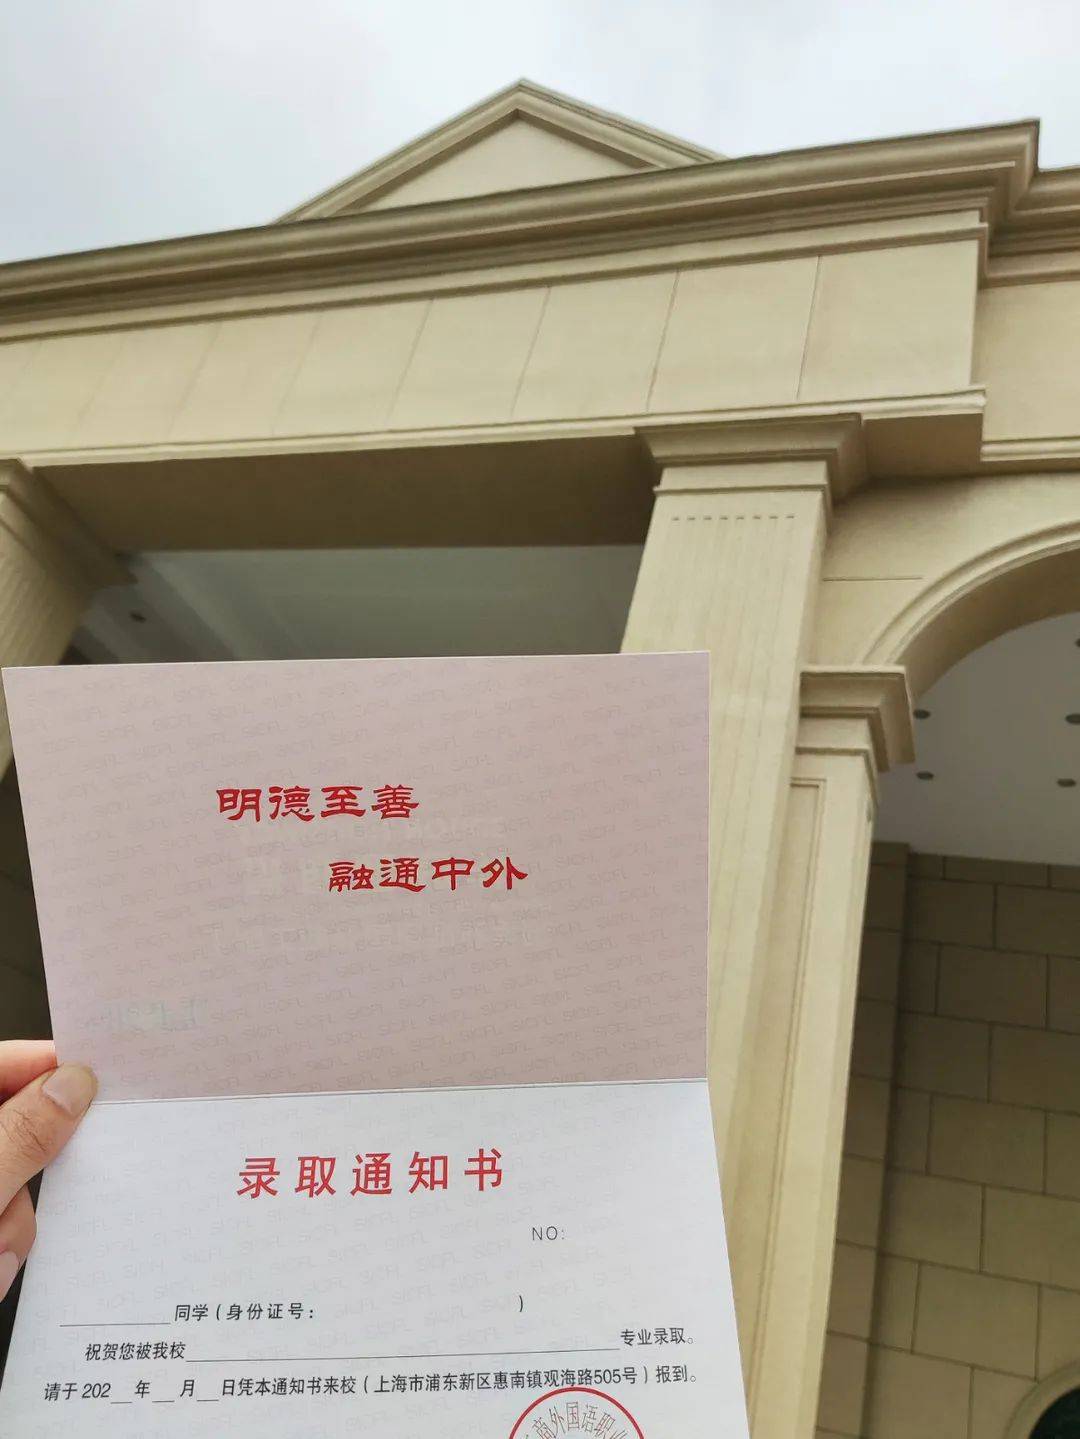 明德至善
融通中外
录取通知书
NO:
同学(身份证号: )
祝贺您被我校 专业录取。
请于202 年 月 日凭本通知书来校(上海市浦东新区惠南镇观海路505号)报到。
商外国语职业